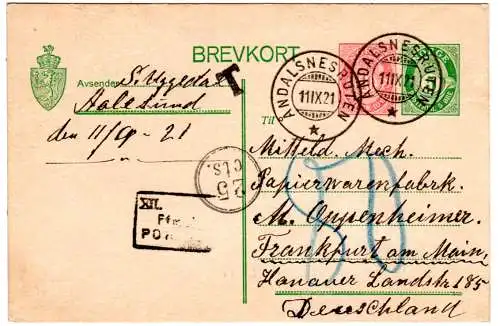 BREVKORT
Avsender:
Aalesund
den 11/9 - 21
T
ÅNDALSNESRUTEN
11 IX 21
ÅNDALSNESRUTEN
11 IX 21
Til
25
cts.
XII.
Mitteld. Mech.
Papierwarenfabrk.
M. Oppenheimer.
Frankfurt am Main,
Hanauer Landstr 185
Deuschland